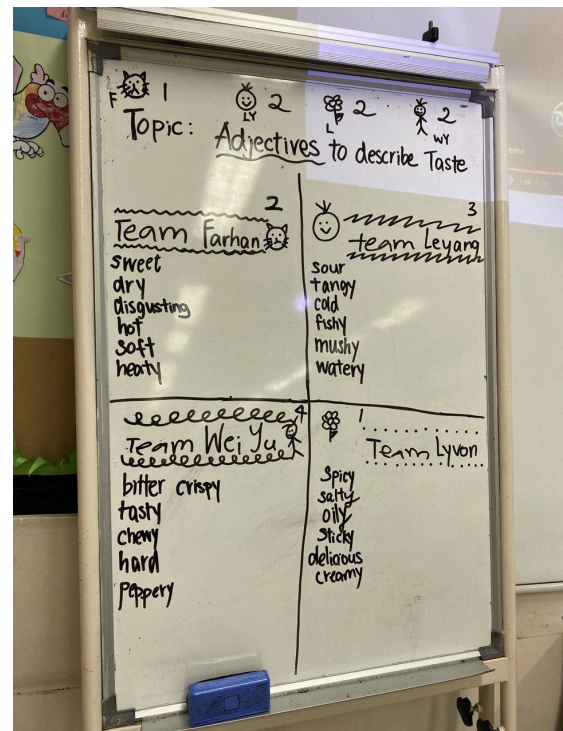 F 1 LY 2 L 2 WY 2
Topic: Adjectives to describe Taste
2
Team Farhan
sweet
dry
disgusting
hot
soft
heaty
3
team Leyang
sour
tangy
cold
fishy
mushy
watery
4
Team Wei Yu
bitter crispy
tasty
chewy
hard
peppery
1
Team Lyvon
Spicy
salty
oily
sticky
delicious
creamy